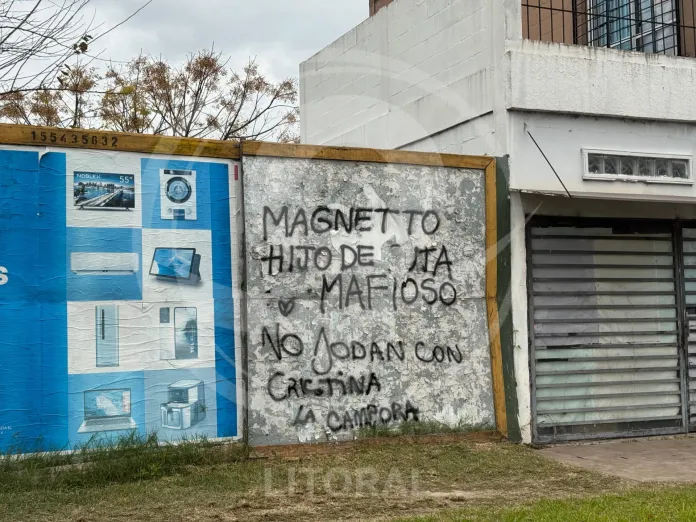 155435632
NOBLEX 55"
s
MAGNETTO
HIJO DE TA
MAFIOSO
NO JODAN CON
CRISTINA
LA CAMPORA
LITORAL